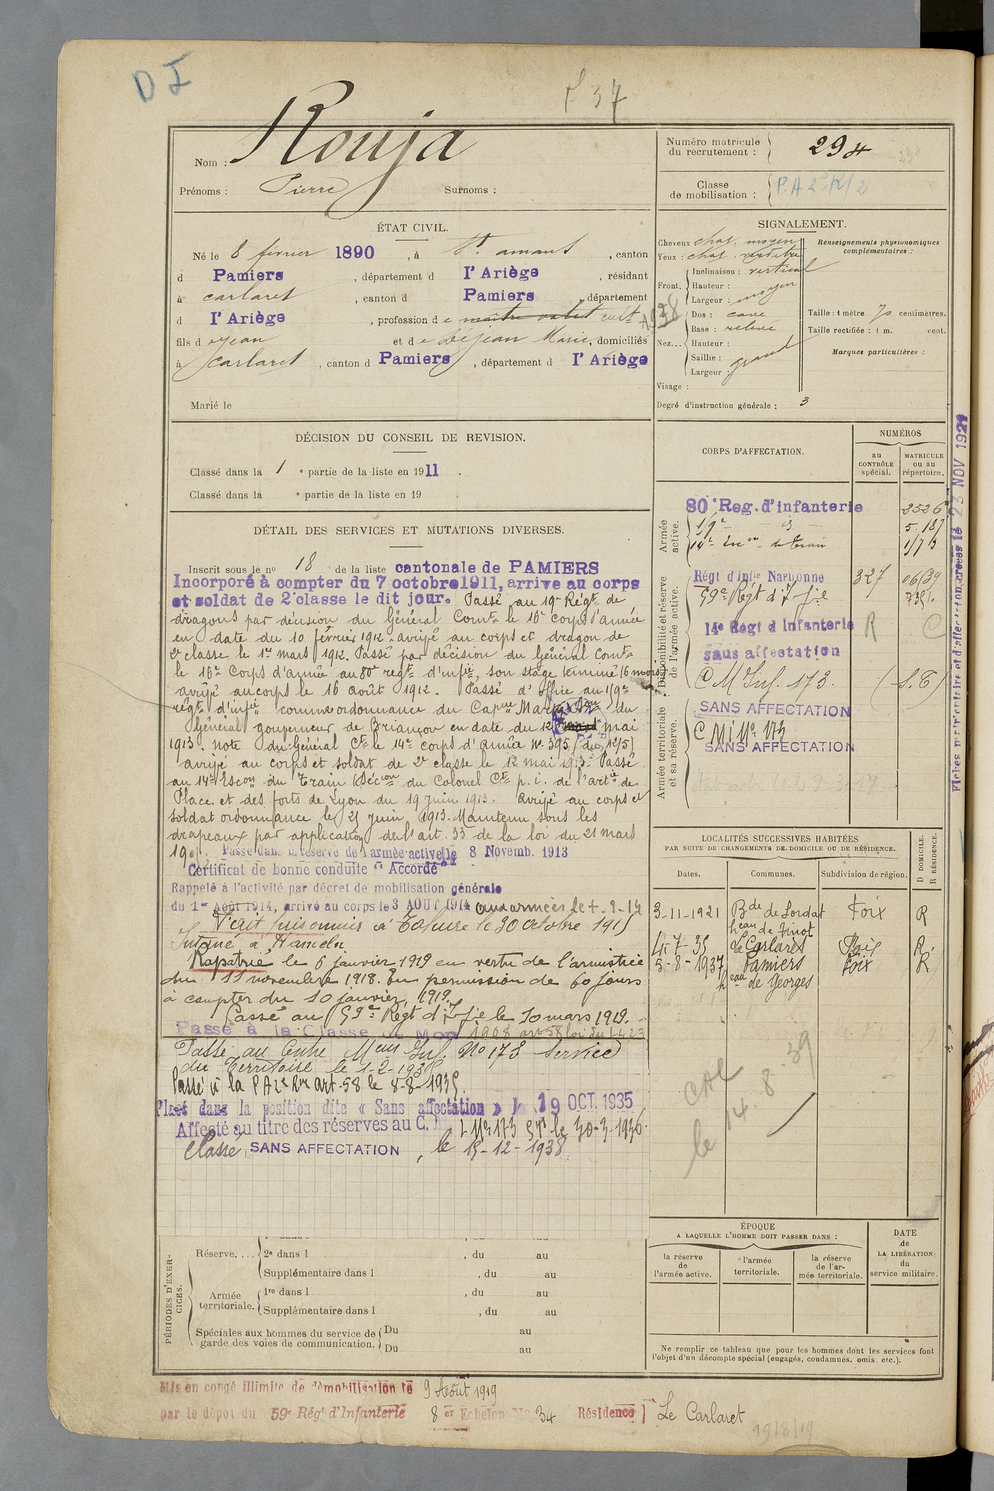 DI
P 37
Nom : Rouja
Prénoms : Pierre Surnoms :
Numéro matricule du recrutement : 294
Classe de mobilisation : P.A 2
ÉTAT CIVIL.
Né le 8 février 1890, à St amans, canton
d Pamiers, département d l'Ariège, résidant
à carlaret, canton d Pamiers, département
d l'Ariège, profession de cult
fils d Jean et de Déjean Marie, domiciliés
à carlaret, canton d Pamiers, département d l'Ariège
Marié le
SIGNALEMENT.
Cheveux chat. moyen
Yeux : chat. verdâtre
Front. Inclinaison : vertical
Hauteur :
Largeur : moyen
Nez... Dos : cave
Base : relevé
Hauteur :
Saillie :
Largeur : grand
Visage :
Degré d'instruction générale : 3
Renseignements physionomiques complémentaires :
Taille : 1 mètre 70 centimètres.
Taille rectifiée : 1 m. cent.
Marques particulières :
DÉCISION DU CONSEIL DE REVISION.
Classé dans la 1e partie de la liste en 1911.
Classé dans la e partie de la liste en 19
DÉTAIL DES SERVICES ET MUTATIONS DIVERSES.
Inscrit sous le no 18 de la liste cantonale de PAMIERS
Incorporé à compter du 7 octobre 1911, arrive au corps
et soldat de 2e classe le dit jour. Passé au 19e Régt de
dragons par décision du Général Comt le 16e corps d'armée
en date du 10 février 1912. arrivé au corps et dragon de
2e classe le 1er mars 1912. Passé par décision du Général Comt
le 16e Corps d'armée au 80e regt d'infie, son stage terminé (6 mois)
arrivé au corps le 16 août 1912. Passé d'office au 159e
régt d'infie comme ordonnance du Capne du
Général gouverneur de Briançon en date du 12 mai
1913. note du Général Ct le 14e corps d'armée No 395 (du 12/5)
arrivé au corps et soldat de 2e classe le 12 mai 1913. Passé
au 14e Escon du Train (Décion du Colonel Ct p. i. de l'artie de
Place et des forts de Lyon du 19 Juin 1913. arrivé au corps et
soldat ordonnance le 21 juin 1913. Maintenu sous les
drapeaux par application de l'art. 33 de la loi du 21 mars
1905. Passé dans la réserve de l'armée active le 8 Novemb. 1913
Certificat de bonne conduite "Accordé"
Rappelé à l'activité par décret de mobilisation générale
du 1er Août 1914, arrivé au corps le 3 AOUT 1914 aux armées le
Fait prisonnier à Tahure le 30 octobre 1915
Interné à Hameln
Rapatrié le 6 janvier 1919 en vertu de l'armistice
du 11 novembre 1918. En permission de 60 jours
à compter du 10 janvier 1919.
Passé au 59e Régt d'Ifie le 10 mars 1919.
Passé à la Classe de Mob 1908 art 58 loi du 1-4-23
Passé au Centre Meur Inf. No 173 Service
du Territoire le 1-2-193
Passé à la P A 2e Rve art. 58 le 8-8-193
Placé dans la position dite « Sans affectation » le 19 OCT. 1935
Affecté au titre des réserves au C. M I No 173 le 30-3-1936
Classé SANS AFFECTATION, le 15-12-1938
CORPS D'AFFECTATION.
NUMÉROS
au CONTRÔLE spécial.
MATRICULE ou au répertoire.
Armée active.
80e Reg. d'infanterie 2526
19e 5.187
14e Escon du Train 1/713
Disponibilité et réserve de l'armée active.
Régt d'Infie Narbonne 327
59e Régt d'Ifie
14e Regt d Infanterie R C
sans affectation
C M Inf. 173 (S.T)
Armée territoriale et sa réserve.
SANS AFFECTATION
C M I No 173
SANS AFFECTATION
23 NOV 1921
LOCALITÉS SUCCESSIVES HABITÉES
PAR SUITE DE CHANGEMENTS DE DOMICILE OU DE RÉSIDENCE.
Dates. Communes. Subdivision de région. D DOMICILE. R RÉSIDENCE.
3-11-1921 Bde de Lordat Foix R
heau de Finot
7-35 Le Carlaret Foix R
3-8-1937 Pamiers Foix R
heau de Georges
CAC
le 14.8.39
ÉPOQUE
A LAQUELLE L'HOMME DOIT PASSER DANS :
la réserve de l'armée active.
l'armée territoriale.
la réserve de l'armée territoriale.
DATE de LA LIBÉRATION du service militaire.
Ne remplir ce tableau que pour les hommes dont les services font
l'objet d'un décompte spécial (engagés, condamnés, omis, etc.).
PÉRIODES D'EXERCICES.
Réserve.... 2e dans l , du au
Supplémentaire dans l , du au
Armée territoriale. 1re dans l , du au
Supplémentaire dans l , du au
Spéciales aux hommes du service de garde des voies de communication. Du au
Du au
Mis en congé illimité de démobilisation le 9 Août 1919
par le dépôt du 59e Régt d'Infanterie 8er Echelon No 34 Résidence Le Carlaret
19/8/19